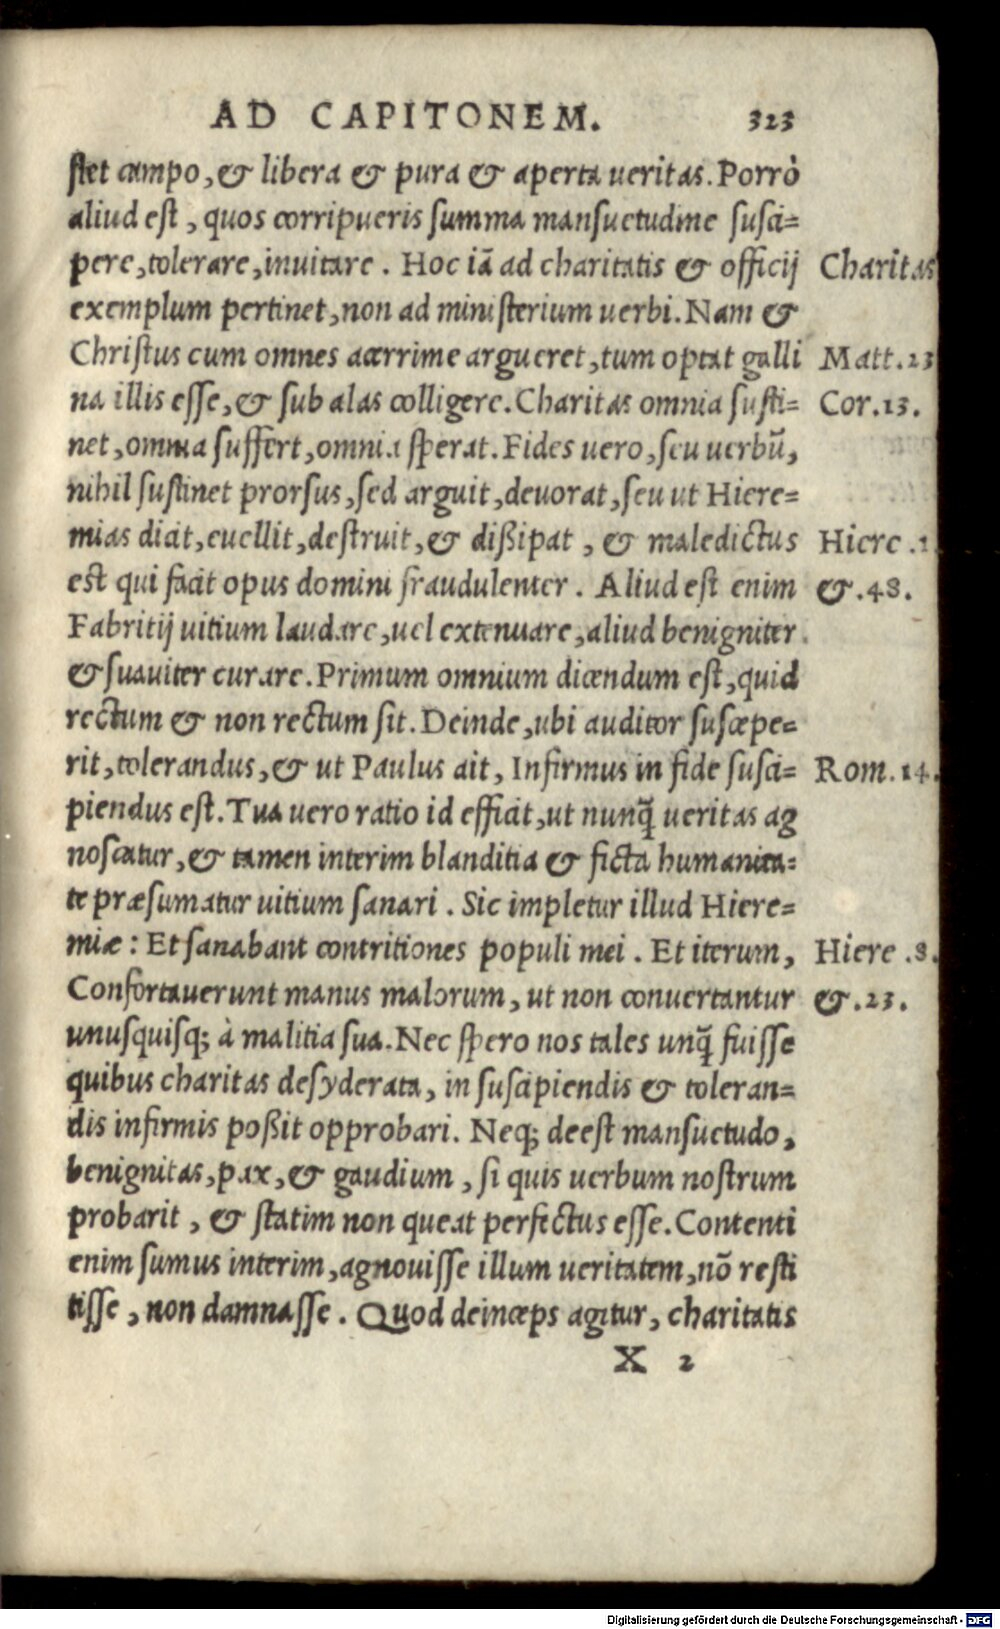 AD CAPITONEM. 323
stet campo, & libera & pura & aperta ueritas. Porrò
aliud est, quos corripueris summa mansuetudine susci=
pere, tolerare, inuitare. Hoc iã ad charitatis & officij
Charitas
exemplum pertinet, non ad ministerium uerbi. Nam &
Christus cum omnes acerrime argueret, tum optat galli
Matt. 23
na illis esse, & sub alas colligere. Charitas omnia susti=
Cor. 13.
net, omnia suffert, omnia sperat. Fides uero, seu uerbũ,
nihil sustinet prorsus, sed arguit, deuorat, seu ut Hiere=
mias dicit, euellit, destruit, & dißipat, & maledictus
Hiere . 1
est qui facit opus domini fraudulenter. Aliud est enim
&. 48.
Fabritij uitium laudare, uel extenuare, aliud benigniter
& suauiter curare. Primum omnium dicendum est, quid
rectum & non rectum sit. Deinde, ubi auditor suscepe=
rit, tolerandus, & ut Paulus ait, Infirmus in fide susci=
Rom. 14.
piendus est. Tua uero ratio id efficit, ut nunq̃ ueritas ag
noscatur, & tamen interim blanditia & ficta humanita=
te præsumatur uitium sanari. Sic impletur illud Hiere=
miæ: Et sanabant contritiones populi mei. Et iterum,
Hiere . 8.
Confortauerunt manus malorum, ut non conuertantur
&. 23.
unusquisq; à malitia sua. Nec spero nos tales unq̃ fuisse
quibus charitas desyderata, in suscipiendis & toleran=
dis infirmis poßit opprobari. Neq; deest mansuetudo,
benignitas, pax, & gaudium, si quis uerbum nostrum
probarit, & statim non queat perfectus esse. Contenti
enim sumus interim, agnouisse illum ueritatem, nõ resti
tisse, non damnasse. Quod deinceps agitur, charitatis
X 2
Digitalisierung gefördert durch die Deutsche Forschungsgemeinschaft - DFG